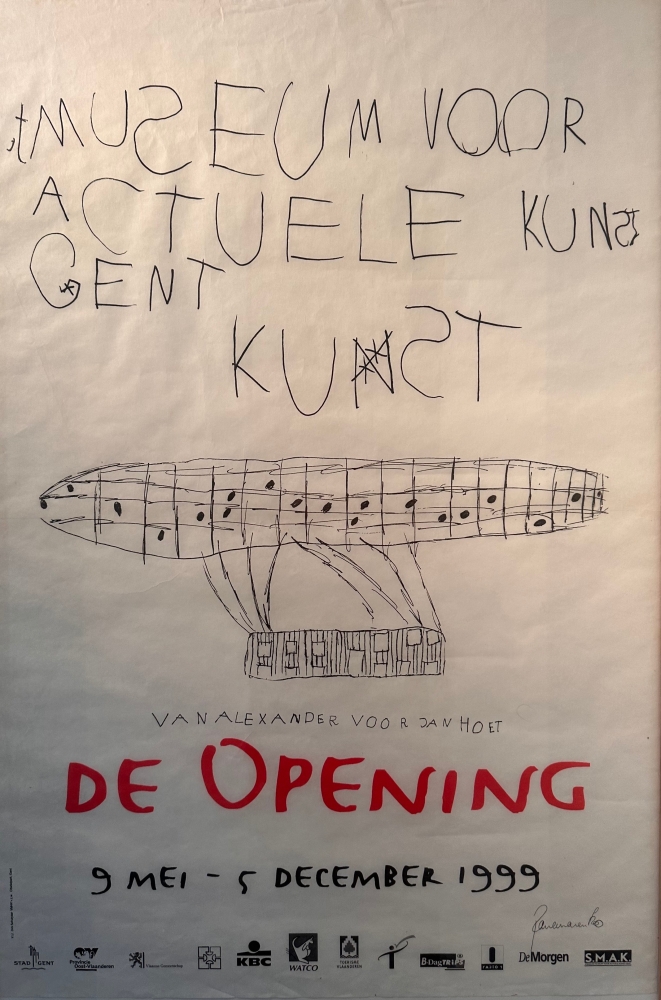 't MUSEUM VOOR
ACTUELE KUNST
GENT
KUNST
VAN ALEXANDER VOOR JAN HOET
DE OPENING
9 MEI - 5 DECEMBER 1999
Panamarenko
STAD GENT
Provincie Oost-Vlaanderen
KBC
WATCO
TOERISME VLAANDEREN
B-DagTRIP
RADIO 1
DeMorgen
S.M.A.K.